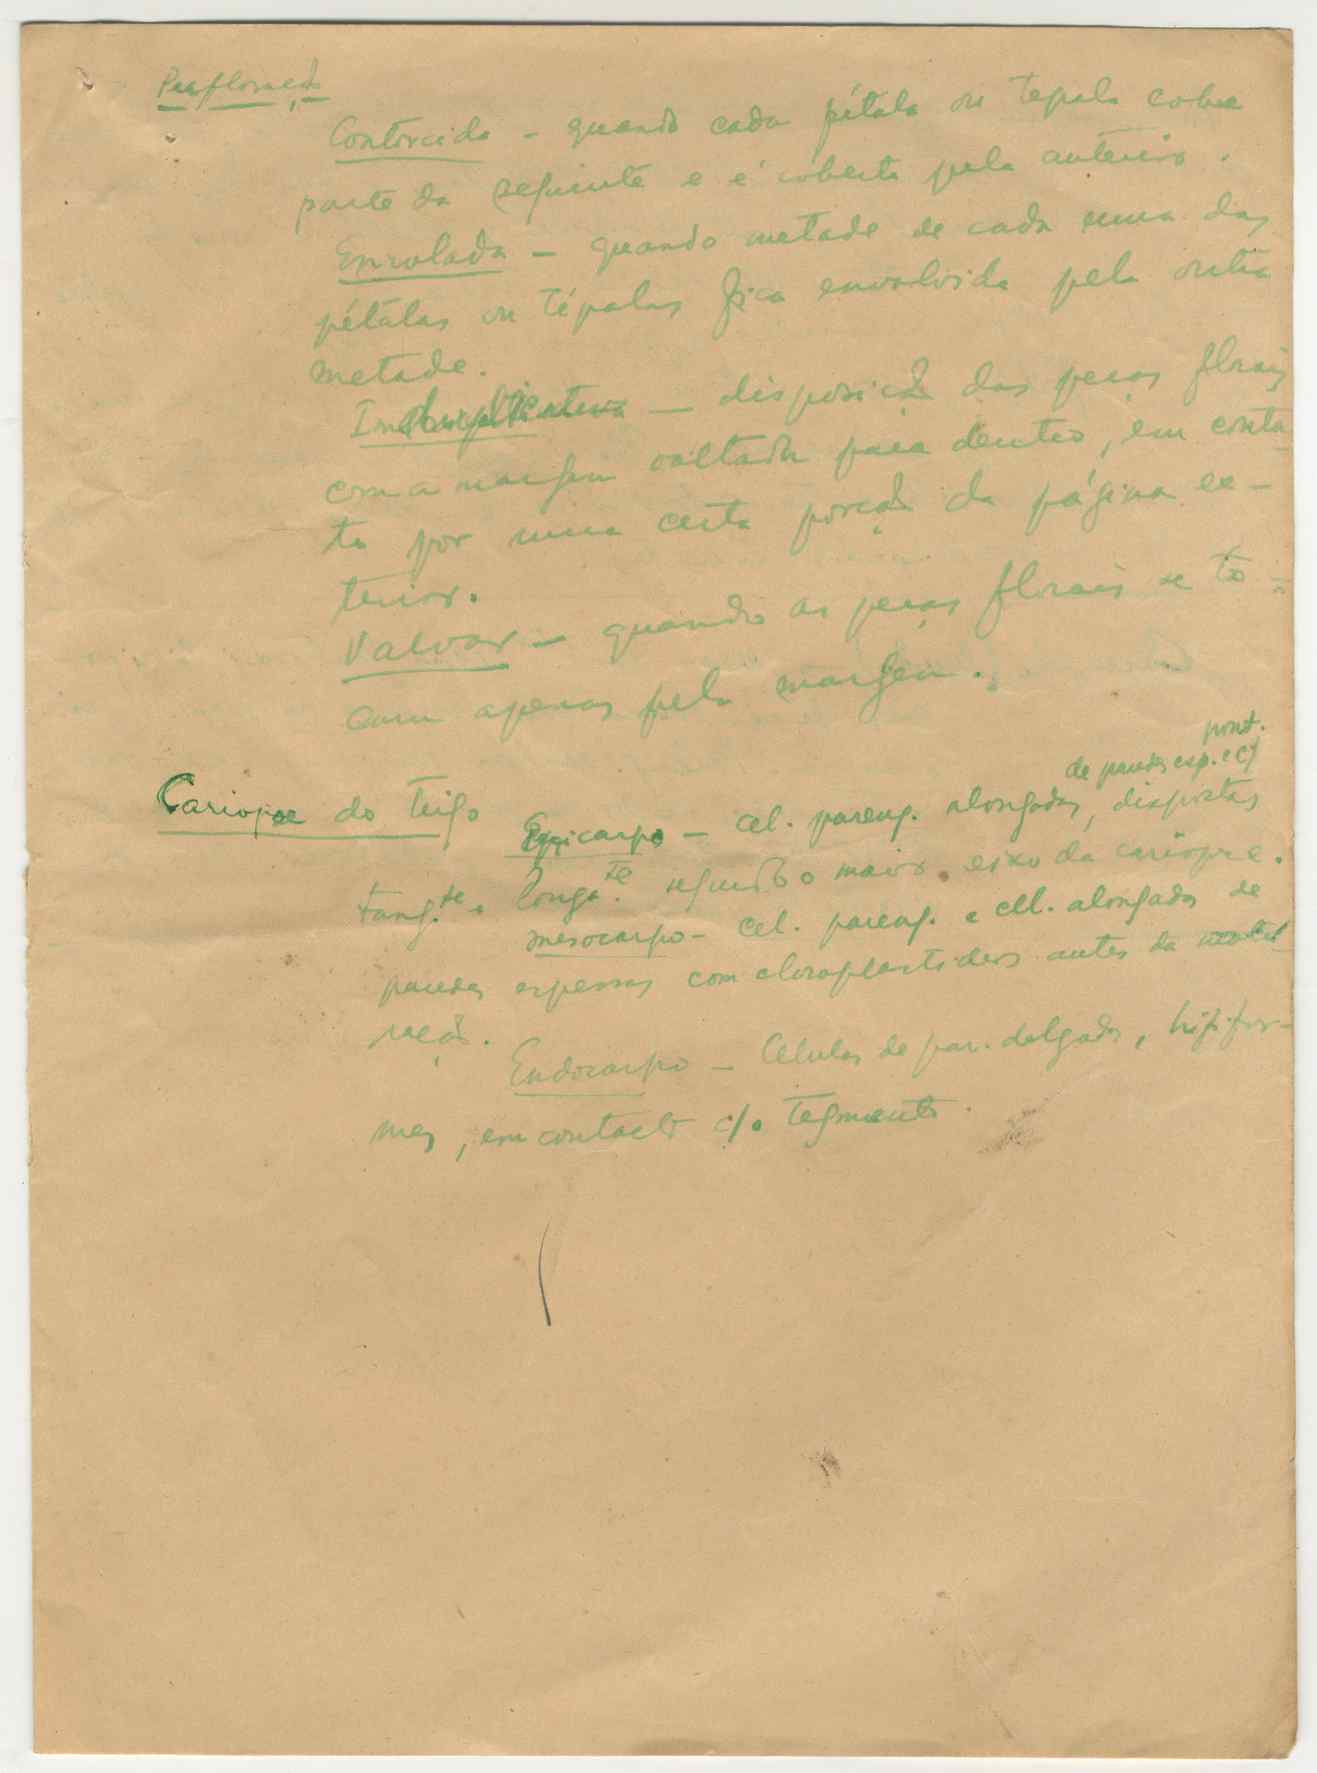 Prefloração
Contorcida - quando cada pétala ou tépala cobre
parte da seguinte e é coberta pela anterior.
Enrolada - quando metade de cada uma das
pétalas ou tépalas fica envolvida pela outra
metade.
Induplicativa - disposição das peças florais
com a margem voltada para dentro, em conta
to por uma certa porção da página ex-
terior.
Valvar - quando as peças florais se to-
cam apenas pela margem.
pont.
de paredes esp. e c/
Cariopse do Trigo Epicarpo - cel. pareng. alongadas, dispostas
tang.te e longa.te segundo o maior eixo da cariopse.
mesocarpo - cel. pareng. e cel. alongadas de
paredes espessas com cloroplastideos antes da matu
ração.
Endocarpo - Células de par. delgada, hififor-
mes, em contacto c/o Tegmento.